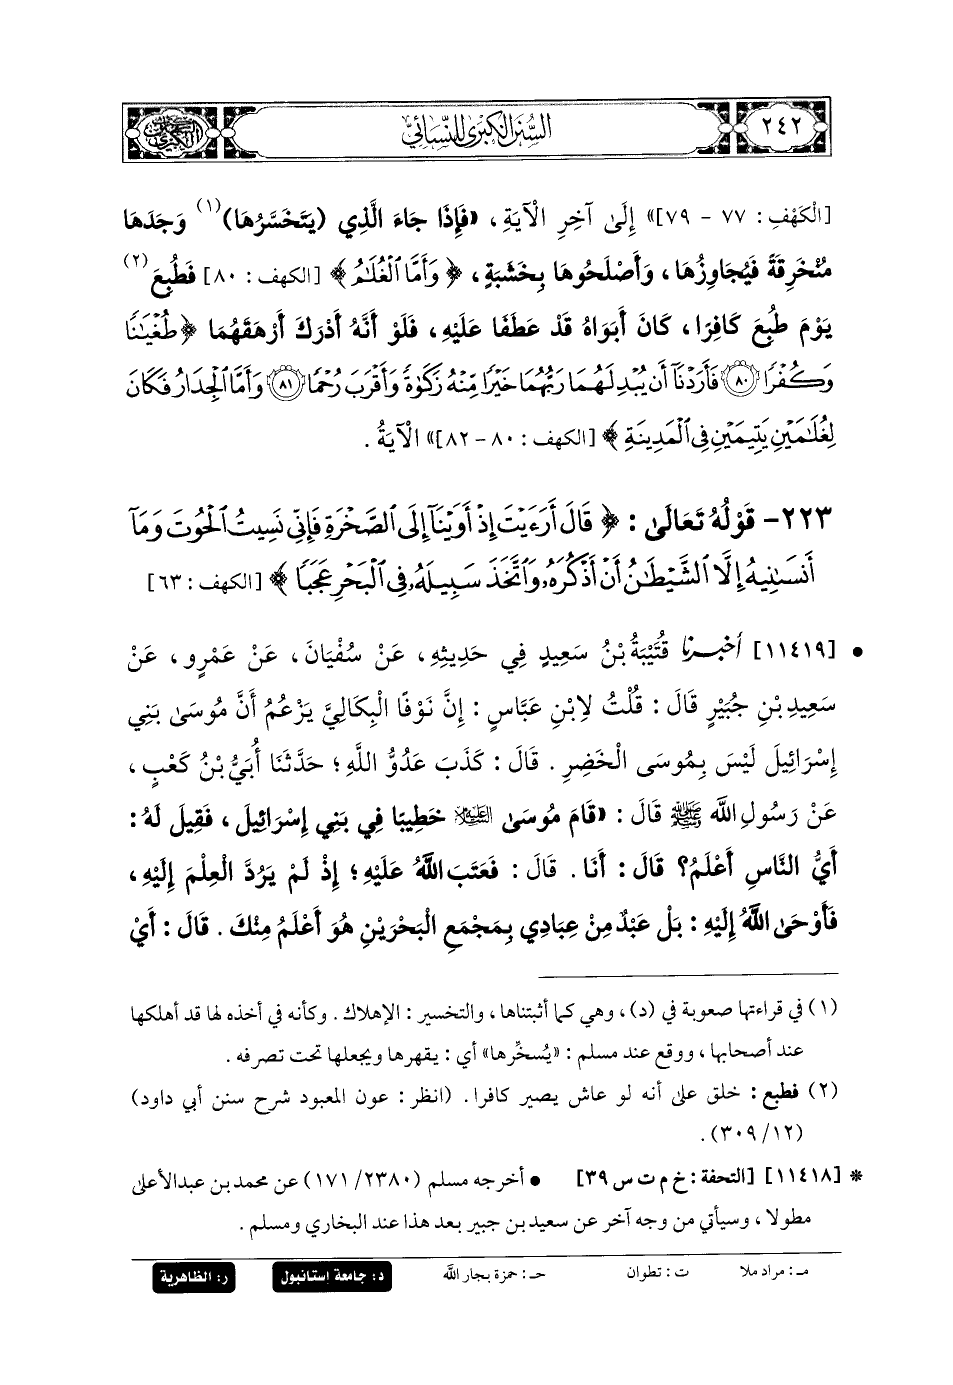 ٢٤٢
السُّنَنُ الْكِبْرَىٰ لِلنَّسَائِيِّ
[الْكَهْفِ : ٧٧ - ٧٩]» إِلَىٰ آخِرِ الْآيَةِ ، «فَإِذَا جَاءَ الَّذِي (يَتَخَسَّرُهَا)(١) وَجَدَهَا
مُنْخَرِقَةً فَيُجَاوِزُهَا ، وَأَصْلَحُوهَا بِخَشَبَةٍ ، ﴿ وَأَمَّا الْغُلَٰمُ ﴾ [الكهف : ٨٠] فَطُبِعَ(٢)
يَوْمَ طُبِعَ كَافِرًا ، كَانَ أَبَوَاهُ قَدْ عَطَفَا عَلَيْهِ ، فَلَوْ أَنَّهُ أَدْرَكَ أَرْهَقَهُمَا ﴿ طُغْيَٰنًا
وَكُفْرًا ٨٠ فَأَرَدْنَآ أَن يُبْدِلَهُمَا رَبُّهُمَا خَيْرًا مِّنْهُ زَكَوٰةً وَأَقْرَبَ رُحْمًا ٨١ وَأَمَّا الْجِدَارُ فَكَانَ
لِغُلَٰمَيْنِ يَتِيمَيْنِ فِي ٱلْمَدِينَةِ ﴾ [الكهف : ٨٠ - ٨٢]» الْآيَةُ .
٢٢٣- قَوْلُهُ تَعَالَىٰ : ﴿ قَالَ أَرَءَيْتَ إِذْ أَوَيْنَآ إِلَى ٱلصَّخْرَةِ فَإِنِّي نَسِيتُ ٱلْحُوتَ وَمَآ
أَنسَىٰنِيهُ إِلَّا ٱلشَّيْطَٰنُ أَنْ أَذْكُرَهُۥ وَٱتَّخَذَ سَبِيلَهُۥ فِي ٱلْبَحْرِ عَجَبًا ﴾ [الكهف : ٦٣]
• [١١٤١٩] أخبرنا قُتَيْبَةُ بْنُ سَعِيدٍ فِي حَدِيثِهِ ، عَنْ سُفْيَانَ ، عَنْ عَمْرٍو ، عَنْ
سَعِيدِ بْنِ جُبَيْرٍ قَالَ : قُلْتُ لِابْنِ عَبَّاسٍ : إِنَّ نَوْفًا الْبِكَالِيَّ يَزْعُمُ أَنَّ مُوسَىٰ بَنِي
إِسْرَائِيلَ لَيْسَ بِمُوسَى الْخَضِرِ . قَالَ : كَذَبَ عَدُوُّ اللَّهِ ؛ حَدَّثَنَا أُبَيُّ بْنُ كَعْبٍ ،
عَنْ رَسُولِ اللَّهِ ﷺ قَالَ : «قَامَ مُوسَىٰ عليه السلام خَطِيبًا فِي بَنِي إِسْرَائِيلَ ، فَقِيلَ لَهُ :
أَيُّ النَّاسِ أَعْلَمُ؟ قَالَ : أَنَا . قَالَ : فَعَتَبَ اللَّهُ عَلَيْهِ ؛ إِذْ لَمْ يَرُدَّ الْعِلْمَ إِلَيْهِ ،
فَأَوْحَى اللَّهُ إِلَيْهِ : بَلْ عَبْدٌ مِنْ عِبَادِي بِمَجْمَعِ الْبَحْرَيْنِ هُوَ أَعْلَمُ مِنْكَ . قَالَ : أَيْ
(١) في قراءتها صعوبة في (د) ، وهي كما أثبتناها ، والتخسير : الإهلاك . وكأنه في أخذه لها قد أهلكها
عند أصحابها ، ووقع عند مسلم : «يُسخِّرها» أي : يقهرها ويجعلها تحت تصرفه .
(٢) فطبع : خلق على أنه لو عاش يصير كافرا . (انظر : عون المعبود شرح سنن أبي داود)
(١٢/ ٣٠٩) .
* [١١٤١٨] [التحفة : خ م ت س ٣٩] • أخرجه مسلم (٢٣٨٠/ ١٧١) عن محمد بن عبدالأعلى
مطولا ، وسيأتي من وجه آخر عن سعيد بن جبير بعد هذا عند البخاري ومسلم .
مـ : مراد ملا ت : تطوان حـ : حمزة بجار الله د : جامعة إستانبول ر : الظاهرية